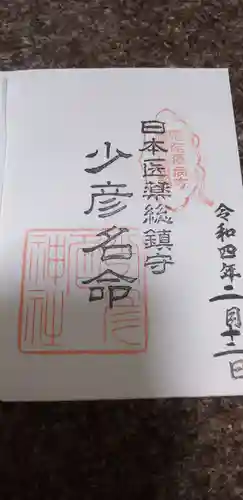 令和四年二月十二日
日本医薬総鎮守
少彦名命
神社